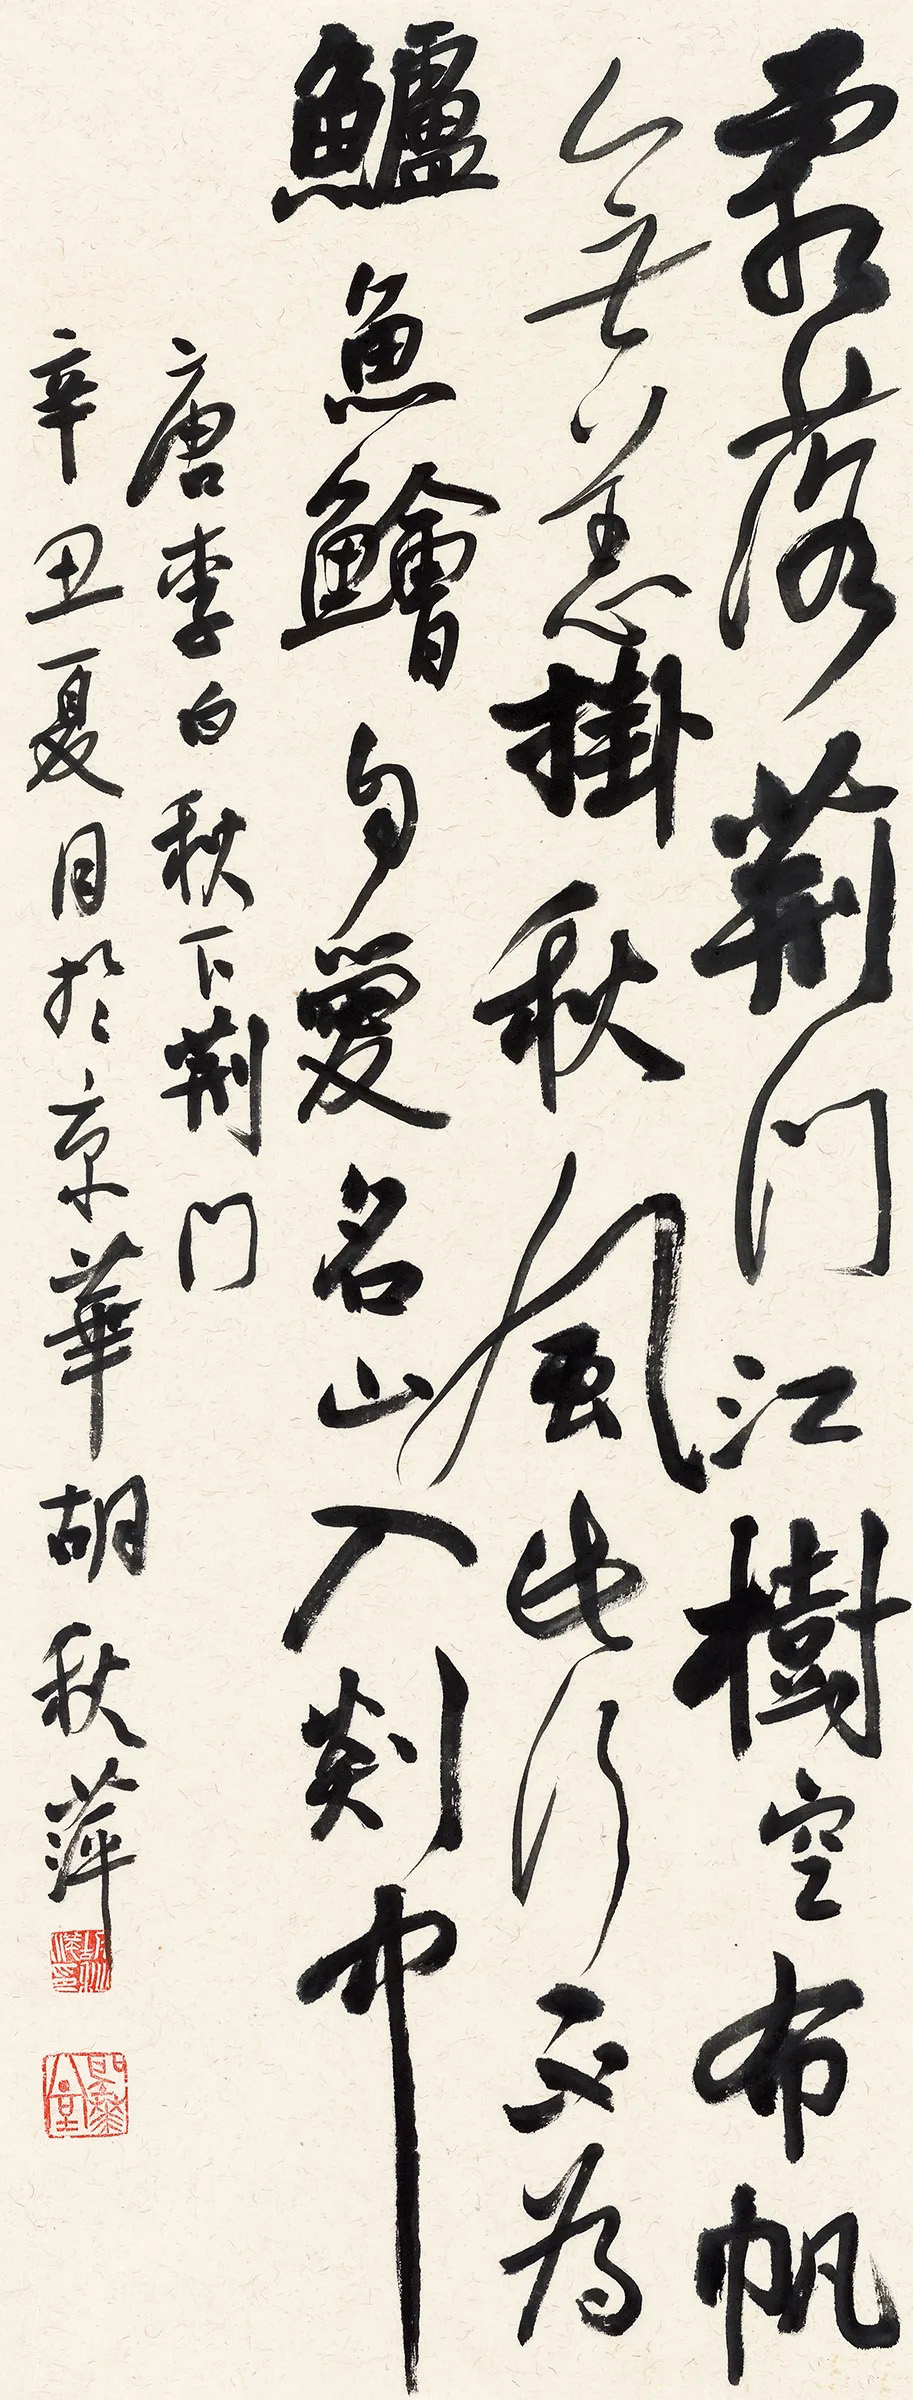 霜落荊門江樹空布帆
無恙掛秋風此行不為
鱸魚鱠自愛名山入剡中
唐李白秋下荊門
辛丑夏月於京華胡秋萍